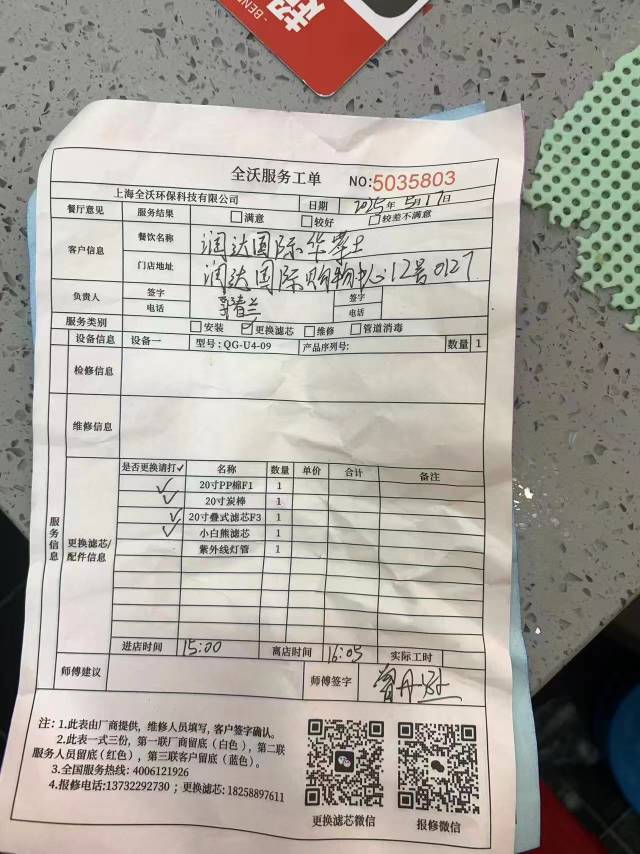 超
BEN
全沃服务工单 NO:5035803
上海全沃环保科技有限公司 日期 2025年 5月17日
餐厅意见 服务结果 满意 较好 较差不满意
客户信息 餐饮名称 润达国际华莱士
门店地址 润达国际购物中心12号0127
负责人 签字 签字
电话 电话
服务类别 安装 ✓更换滤芯 维修 管道消毒
设备信息 设备一 型号:QG-U4-09 产品序列号: 数量 1
检修信息
维修信息
服务信息
更换滤芯/配件信息
是否更换请打✓ 名称 数量 单价 合计 备注
✓ 20寸PP棉F1 1
✓ 20寸炭棒 1
✓ 20寸叠式滤芯F3 1
✓ 小白熊滤芯 1
紫外线灯管 1
进店时间 15:00 离店时间 16:05 实际工时
师傅建议 师傅签字
注:1.此表由厂商提供，维修人员填写,客户签字确认。
2.此表一式三份，第一联厂商留底（白色），第二联
服务人员留底(红色），第三联客户留底（蓝色）。
3.全国服务热线: 4006121926
4.报修电话:13732292730 ; 更换滤芯: 18258897611
更换滤芯微信 报修微信